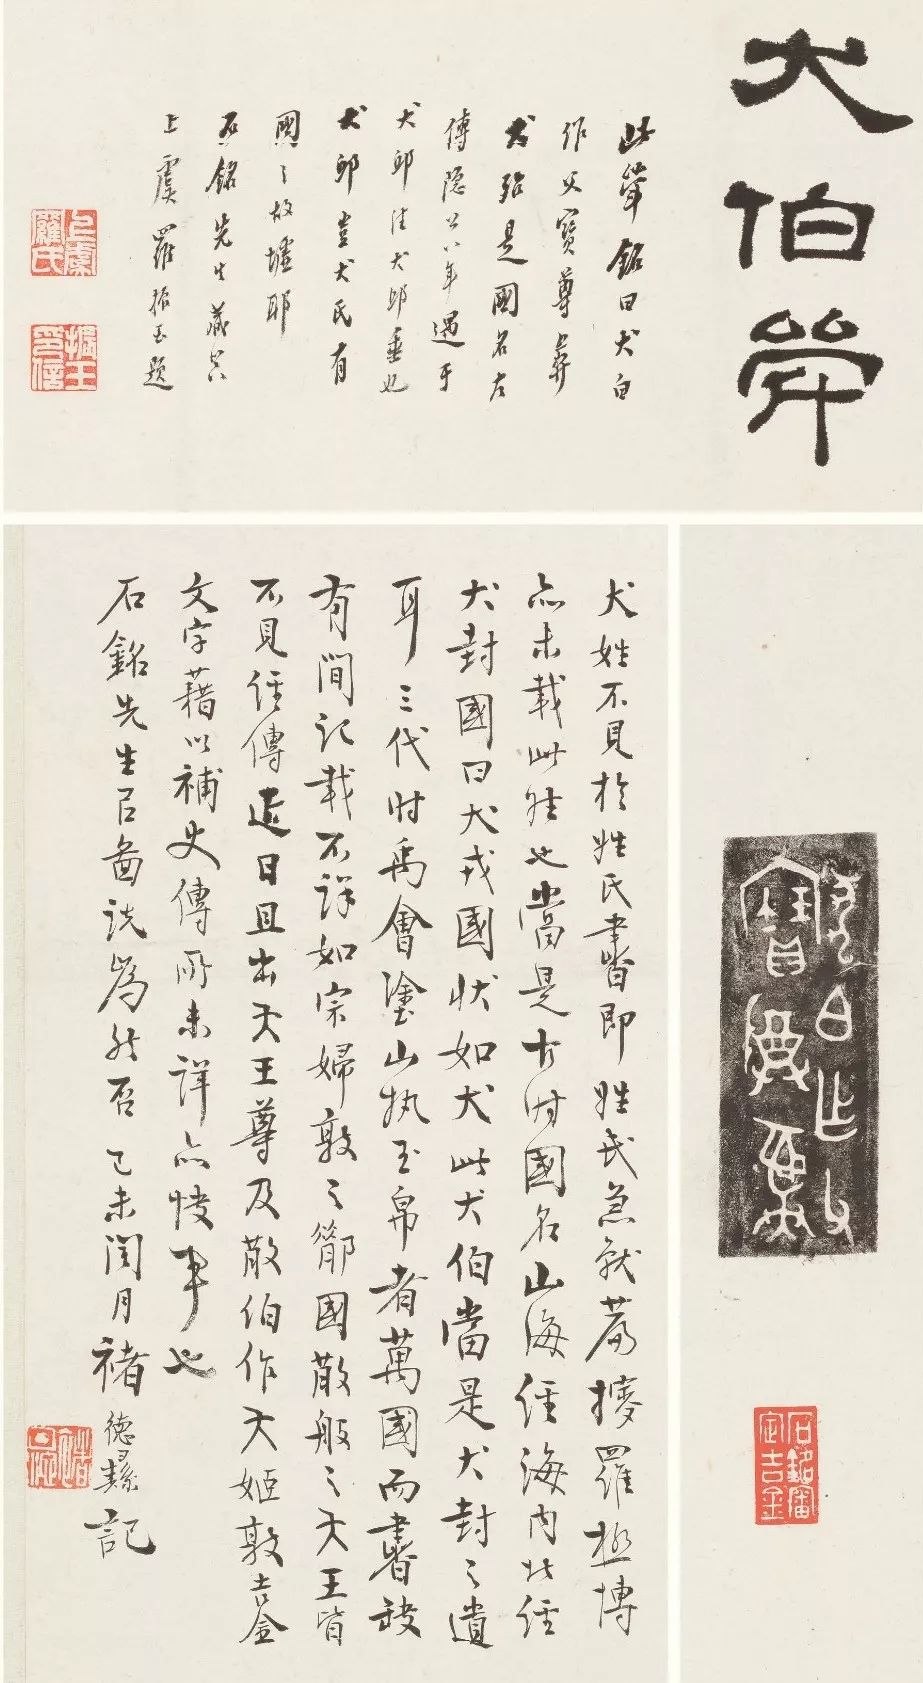 犬伯斝
此斝銘曰犬白
作父寶尊彝
犬殆是國名左
傳隱公八年遇于
犬邱注犬邱垂也
犬邱豈犬氏有
國之故墟耶
石銘先生藏器
上虞羅振玉題
上虞羅氏
振玉印信
犬白乍父
寶尊彝
石銘審定吉金
犬姓不見於姓氏書即姓氏急就篇搜羅極博
亦未載此姓也當是古時國名山海經海內北經
犬封國曰犬戎國狀如犬此犬伯當是犬封之遺
耳三代時禹會塗山執玉帛者萬國而書缺
有間記載不詳如宗婦敦之國散般之夨王皆
不見經傳近日且出夨王尊及散伯作夨姬敦吉金
文字藉以補史傳所未詳亦快事也
石銘先生㠯啚說為然否己未閏月褚德彝記